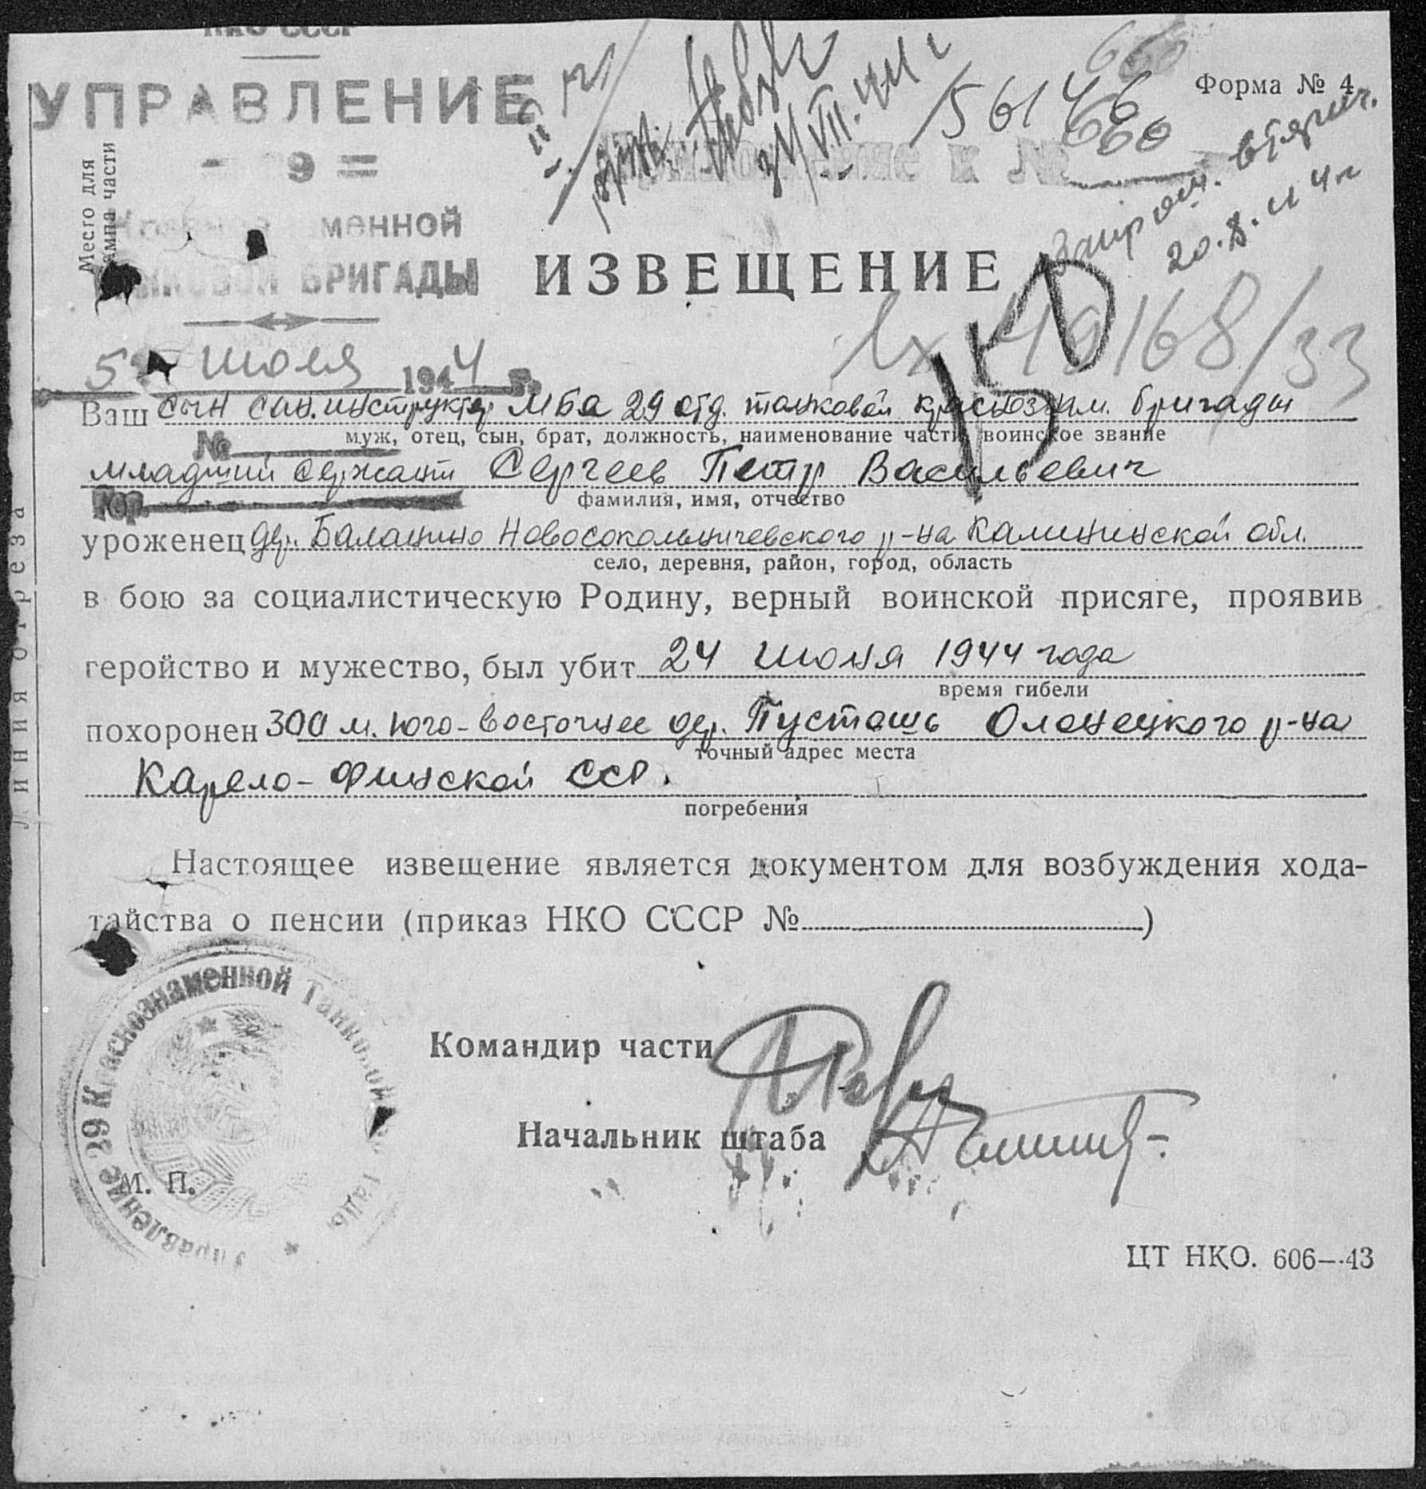 НКО СССР
УПРАВЛЕНИЕ
Форма № 4
561466
660
660
Место для
штампа части
29
Краснознаменной
ТАНКОВОЙ БРИГАДЫ
Приложение к №
20.X.44г
ИЗВЕЩЕНИЕ
49168/33
5 июля 1944 г.
Ваш сын сан. инструктор МБА 29 отд. танковой краснознам. бригады
№
муж, отец, сын, брат, должность, наименование части, воинское звание
младший сержант Сергеев Петр Васильевич
гор.
фамилия, имя, отчество
уроженец дер. Балашино Новосокольнического р-на Калининской обл.
село, деревня, район, город, область
в бою за социалистическую Родину, верный воинской присяге, проявив
геройство и мужество, был убит 24 июня 1944 года
время гибели
похоронен 300 м. юго-восточнее дер. Пусташь Олонецкого р-на
точный адрес места
Карело-Финской ССР.
погребения
Настоящее извещение является документом для возбуждения хода-
тайства о пенсии (приказ НКО СССР № )
Командир части
Начальник штаба
М. П.
Управление 29 Краснознаменной Танковой Бригады
ЦТ НКО. 606—43
Линия отреза